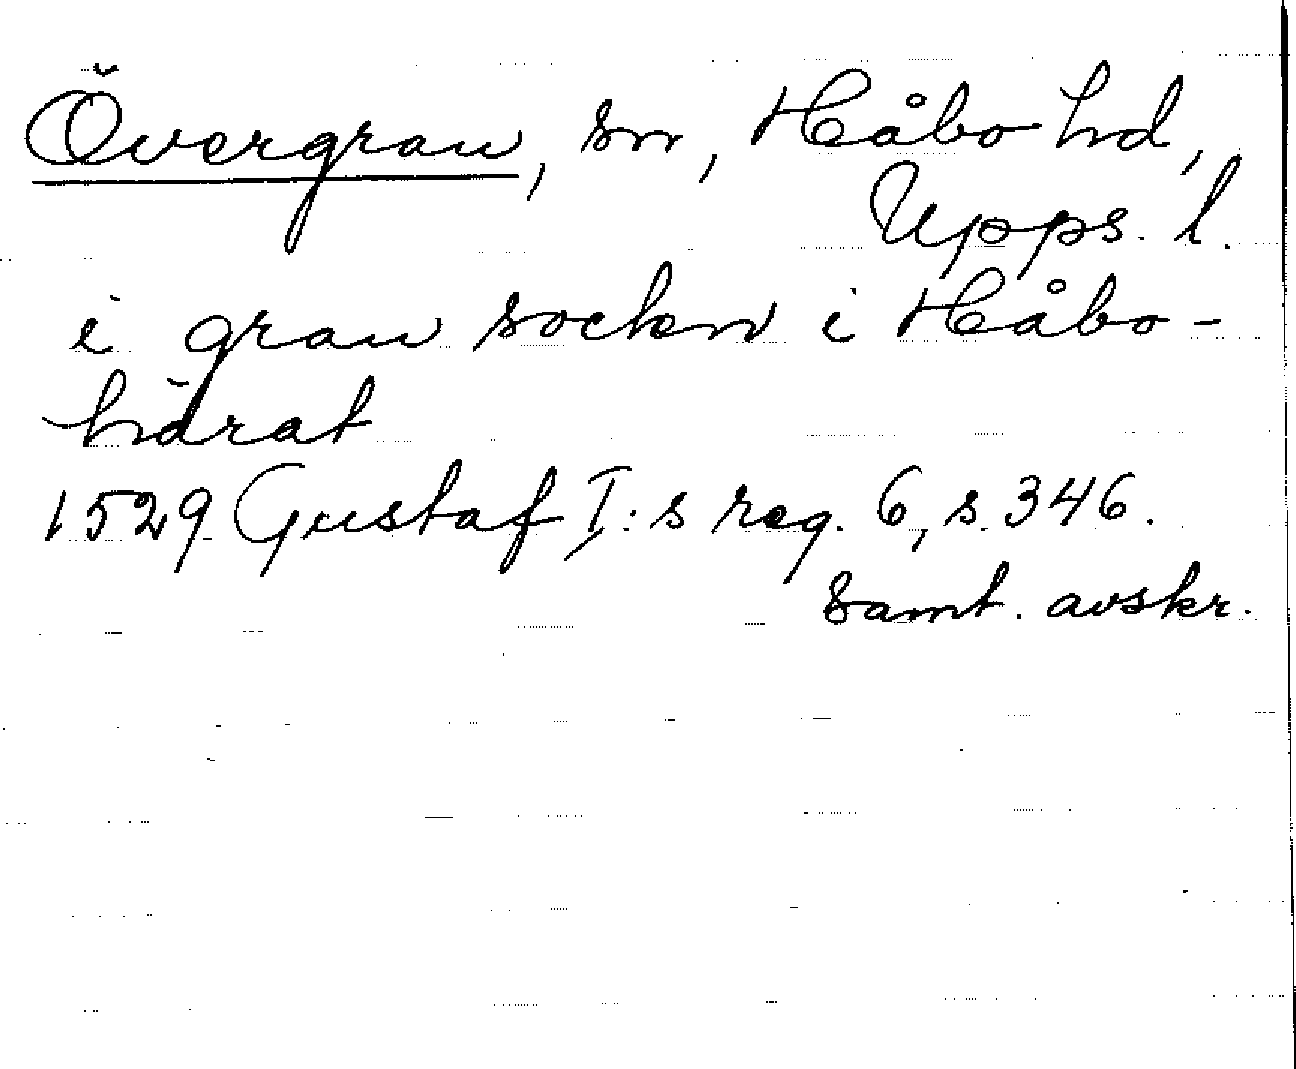 Övergran, sn, Håbo hd,
Upps. l.
i gran sockn i Håbo-
härat
1529 Gustaf I:s reg. 6, s. 346.
Samt. avskr.